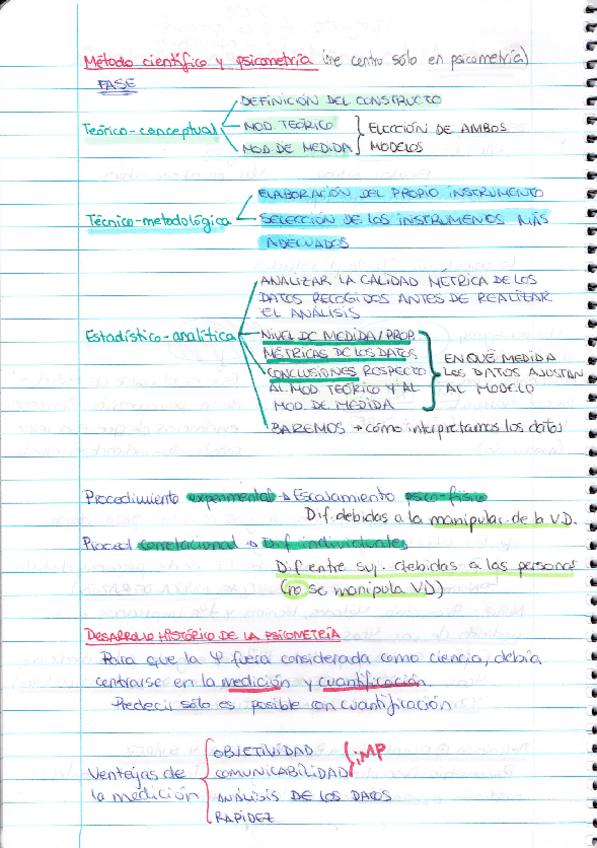 Método científico y psicometría (me centro sólo en psicometría)
FASE
Teórico-conceptual
DEFINICIÓN DEL CONSTRUCTO
MOD TEÓRICO
MOD DE MEDIDA
ELECCIÓN DE AMBOS
MODELOS
Técnico-metodológica
ELABORACIÓN DEL PROPIO INSTRUMENTO
SELECCIÓN DE LOS INSTRUMENTOS MÁS
ADECUADOS
Estadístico-analítica
ANALIZAR LA CALIDAD MÉTRICA DE LOS
DATOS RECOGIDOS ANTES DE REALIZAR
EL ANÁLISIS
NIVEL DE MEDIDA/PROP.
MÉTRICAS DE LOS DATOS
CONCLUSIONES RESPECTO
AL MOD TEÓRICO Y AL
MOD. DE MEDIDA
EN QUÉ MEDIDA
LOS DATOS AJUSTAN
AL MODELO
BAREMOS → cómo interpretamos los datos
Procedimiento experimental → Escalamiento psico-físico
Dif. debidas a la manipulac. de la V.D.
Proced correlacional → Dif individuales
Dif entre suj. debidas a las personas
(no se manipula VD)
DESARROLLO HISTÓRICO DE LA PSICOMETRÍA
Para que la Ψ fuera considerada como ciencia, debía
centrarse en la medición y cuantificación.
Predecir sólo es posible con cuantificación
Ventajas de
la medición
OBJETIVIDAD
COMUNICABILIDAD
¡IMP
ANÁLISIS DE LOS DATOS
RAPIDEZ